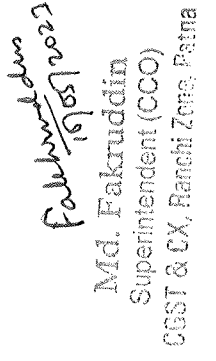 Fakhruddin
16/05/2023
Md. Fakruddin
Superintendent (CCO)
CGST & CX, Ranchi Zone, Patna